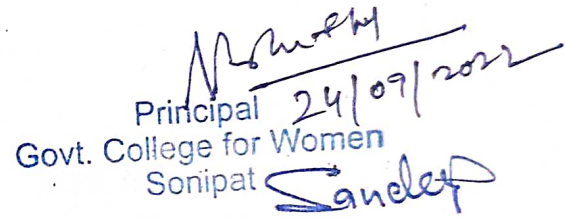 Principal 24/09/2022
Govt. College for Women
Sonipat Sandeep